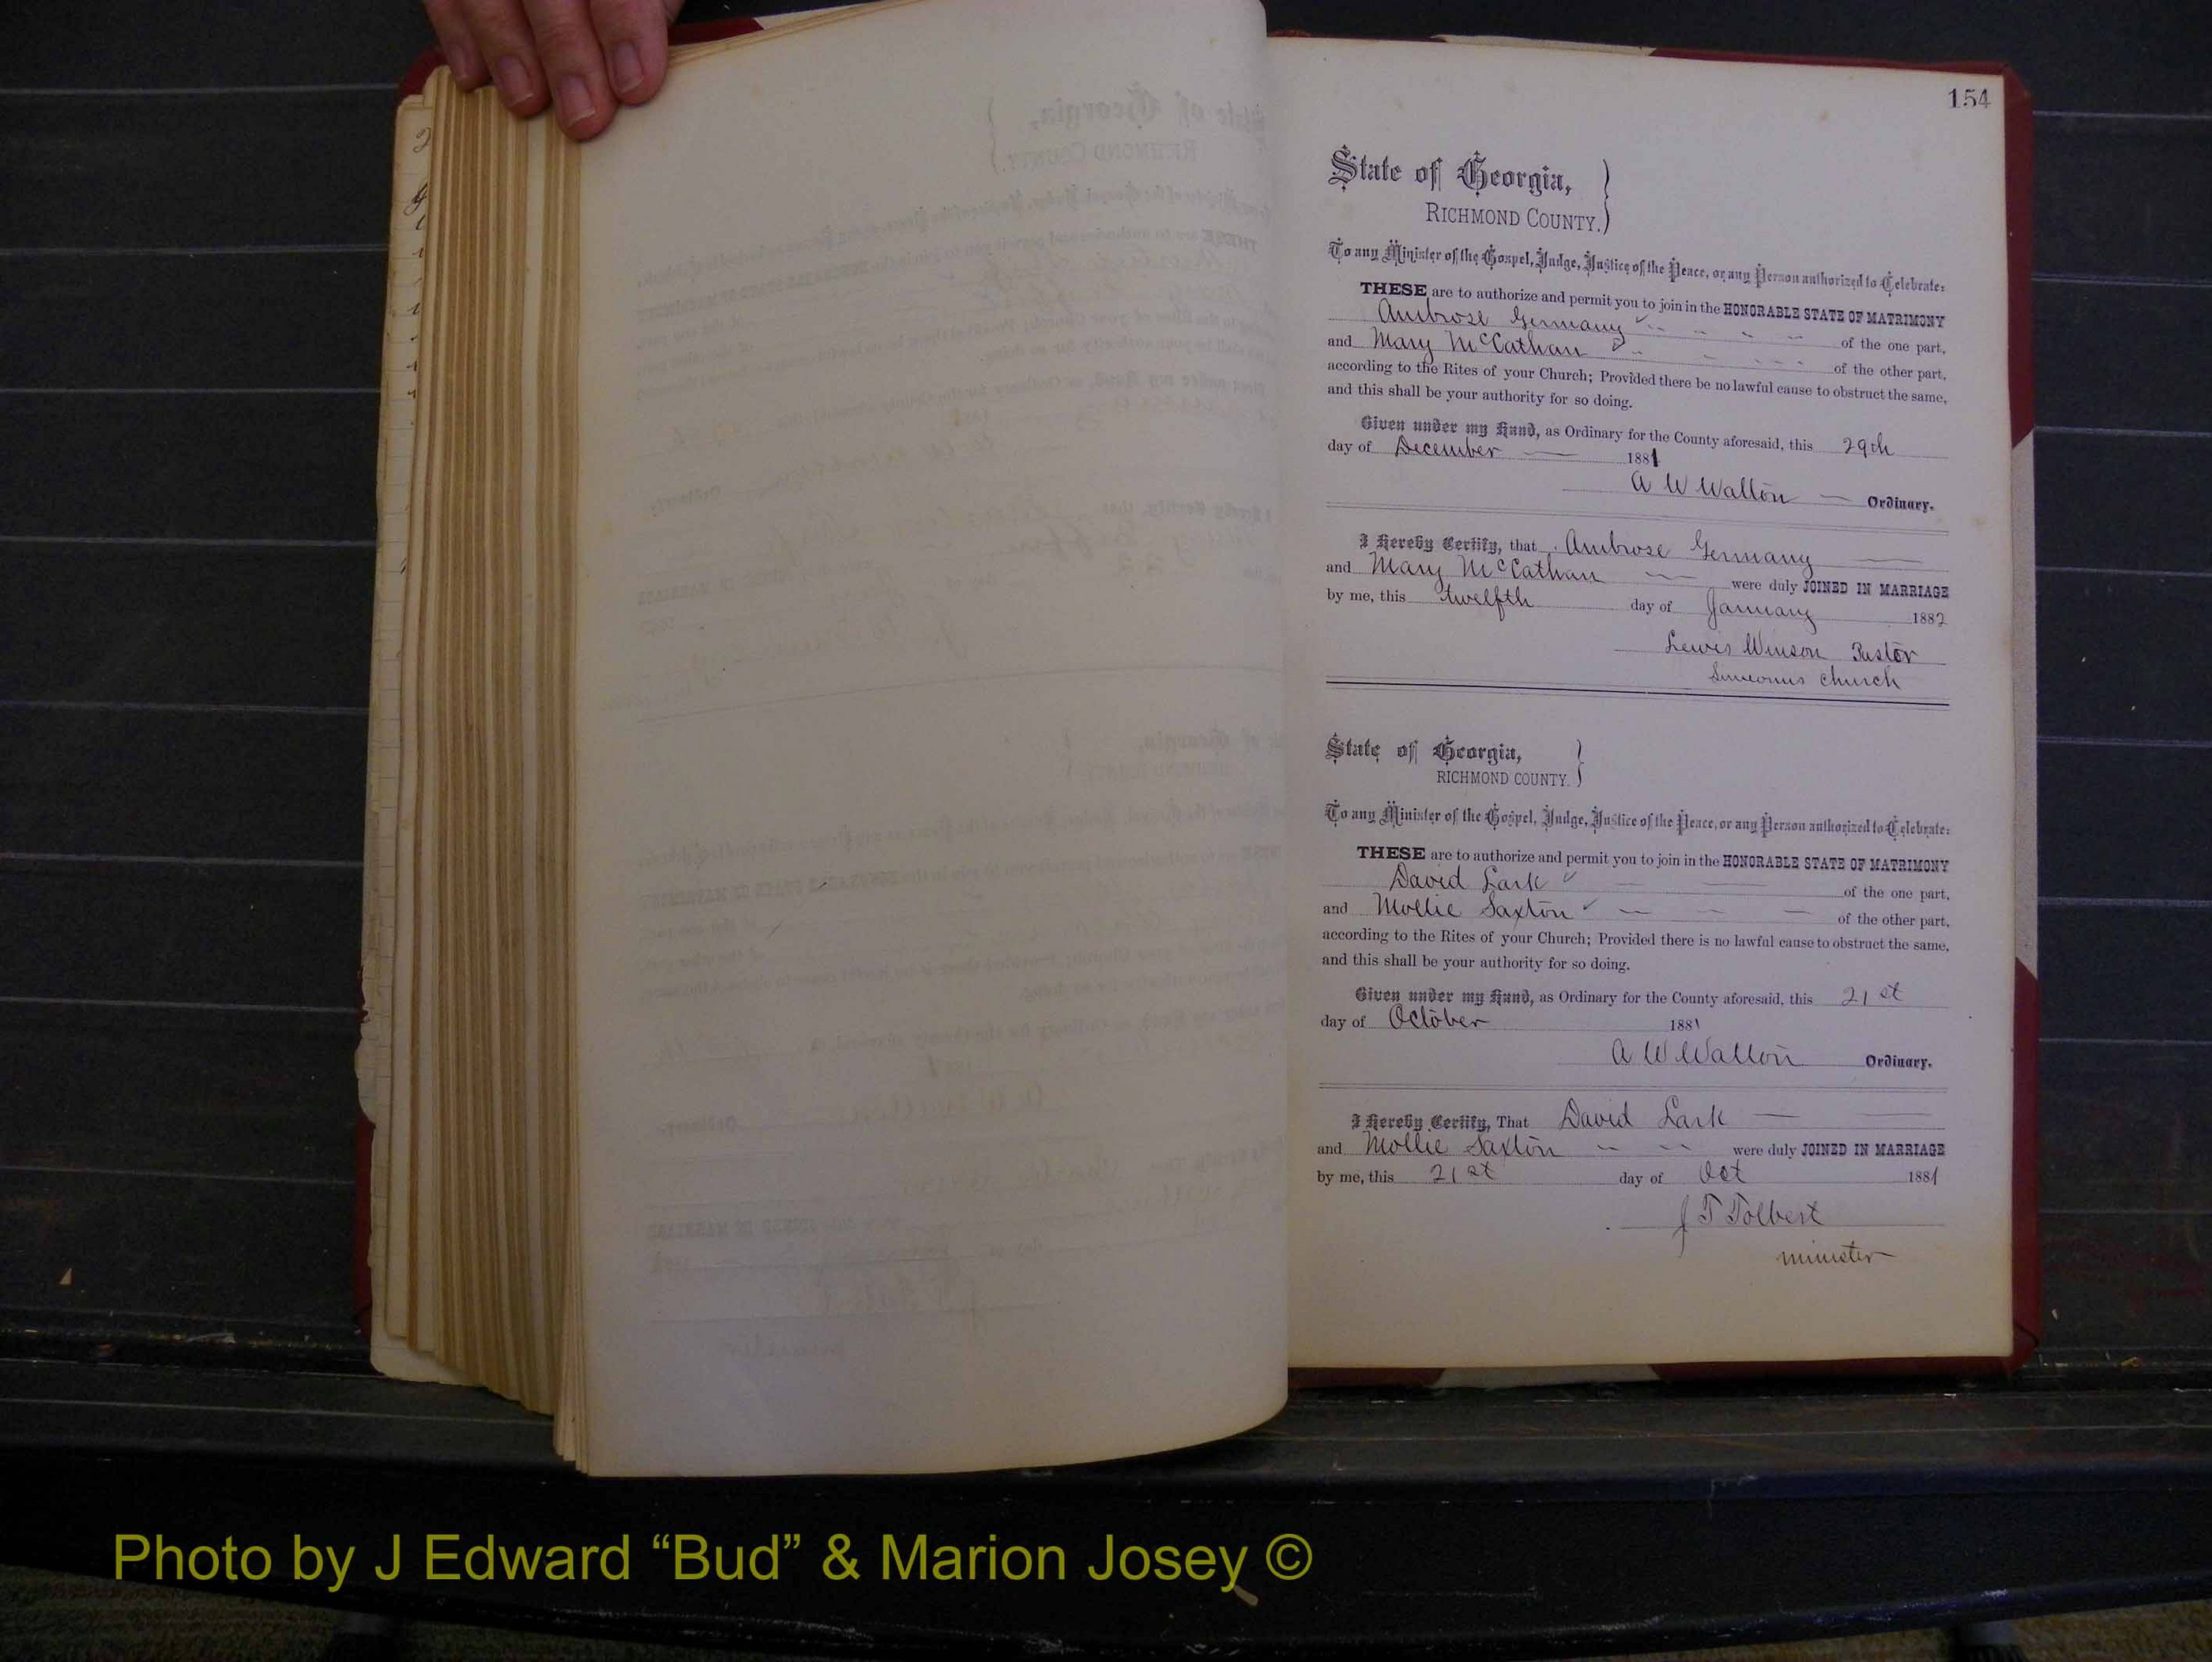 154
State of Georgia,
RICHMOND COUNTY.
To any Minister of the Gospel, Judge, Justice of the Peace, or any Person authorized to Celebrate:
THESE are to authorize and permit you to join in the HONORABLE STATE OF MATRIMONY
Ambrose Germany of the one part,
and Mary McCathan of the other part,
according to the Rites of your Church; Provided there be no lawful cause to obstruct the same,
and this shall be your authority for so doing.
Given under my Hand, as Ordinary for the County aforesaid, this 29th
day of December 1881
A W Walton Ordinary.
I Hereby Certify, that Ambrose Germany
and Mary McCathan were duly JOINED IN MARRIAGE
by me, this twelfth day of January 1882
Lewis Winson Pastor
Church
State of Georgia,
RICHMOND COUNTY.
To any Minister of the Gospel, Judge, Justice of the Peace, or any Person authorized to Celebrate:
THESE are to authorize and permit you to join in the HONORABLE STATE OF MATRIMONY
David Lark of the one part,
and Mollie Saxton of the other part,
according to the Rites of your Church; Provided there is no lawful cause to obstruct the same,
and this shall be your authority for so doing.
Given under my Hand, as Ordinary for the County aforesaid, this 21st
day of October 1881
A W Walton Ordinary.
I Hereby Certify, That David Lark
and Mollie Saxton were duly JOINED IN MARRIAGE
by me, this 21st day of Oct 1881
J T Tolbert
minister
Photo by J Edward “Bud” & Marion Josey ©